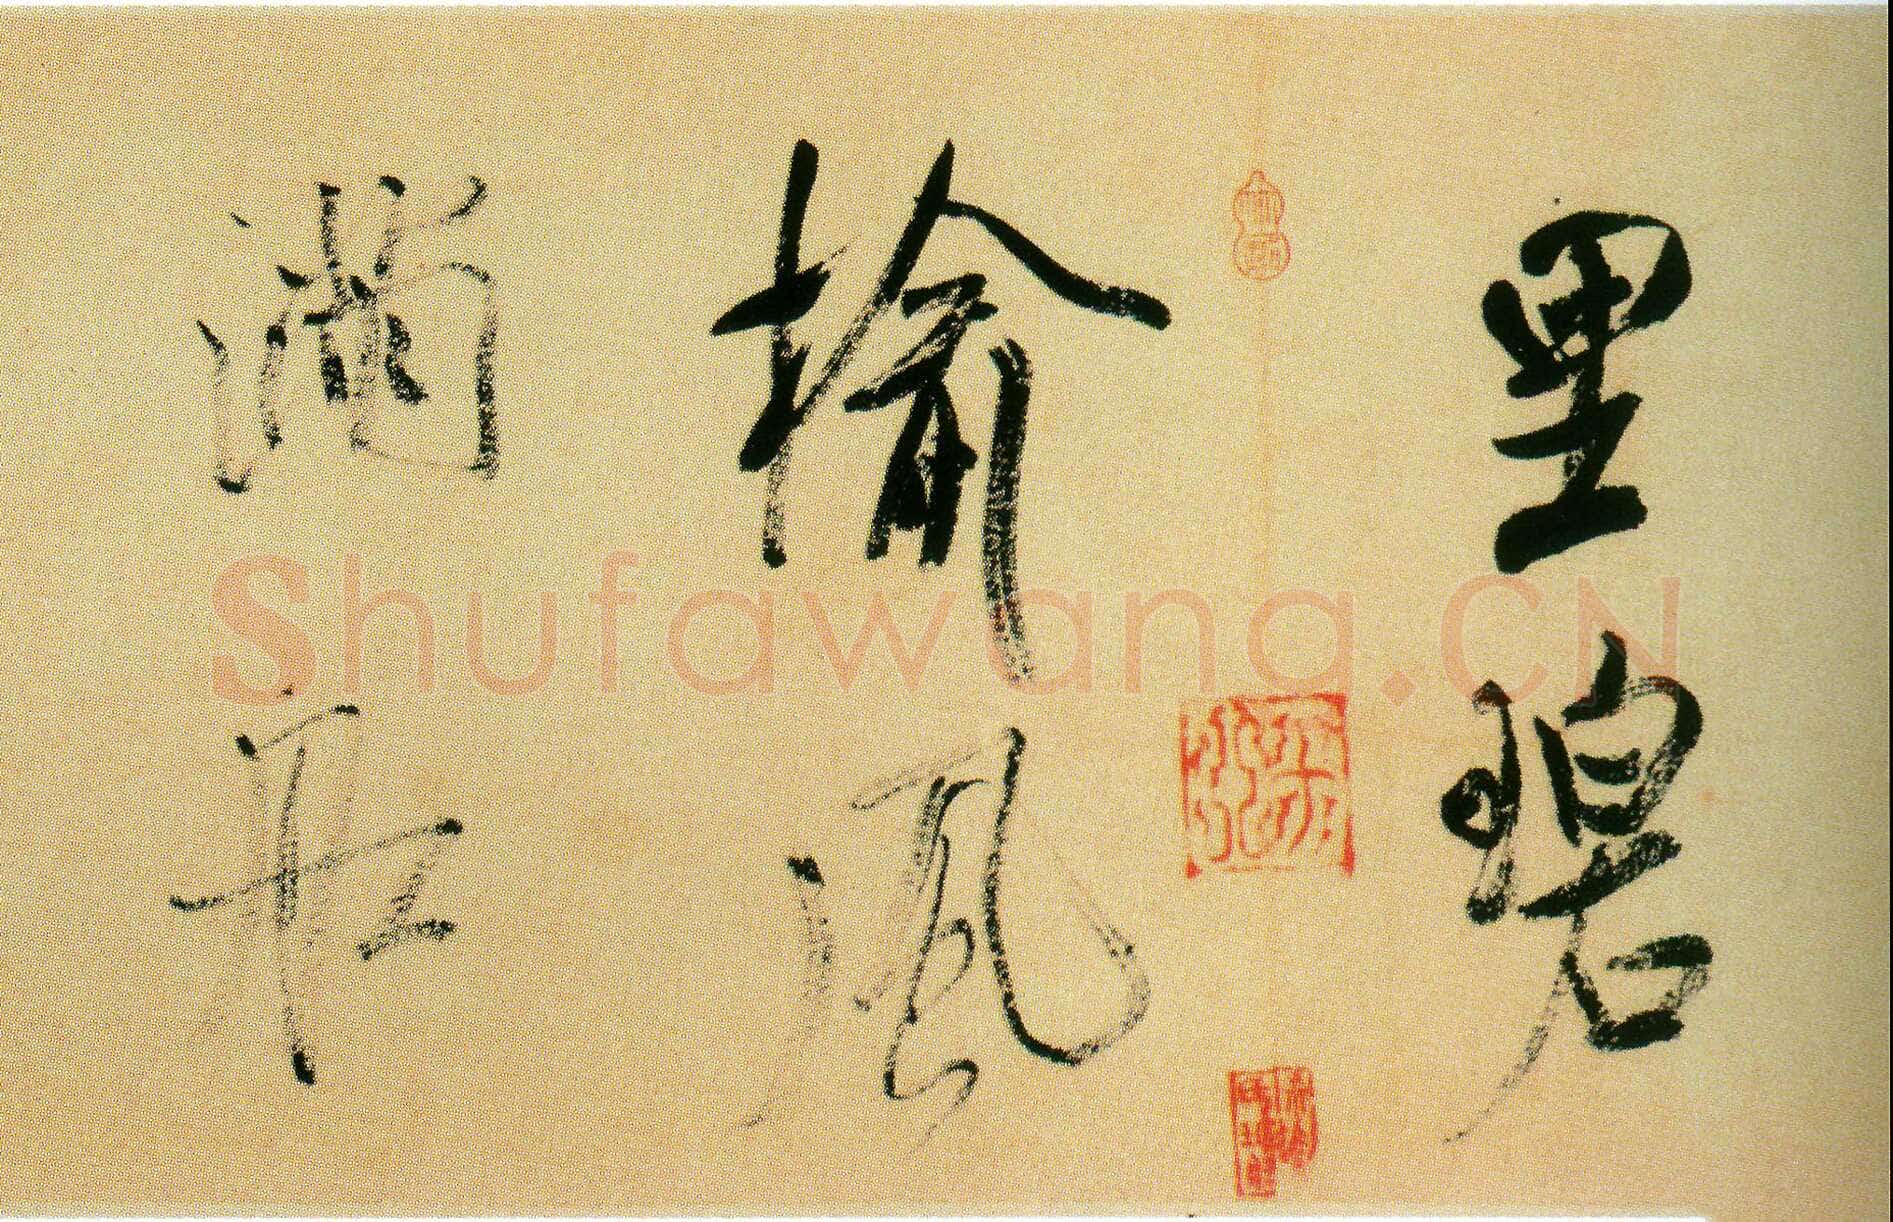 里碧
榆風
滿舡
Shufawang.CN